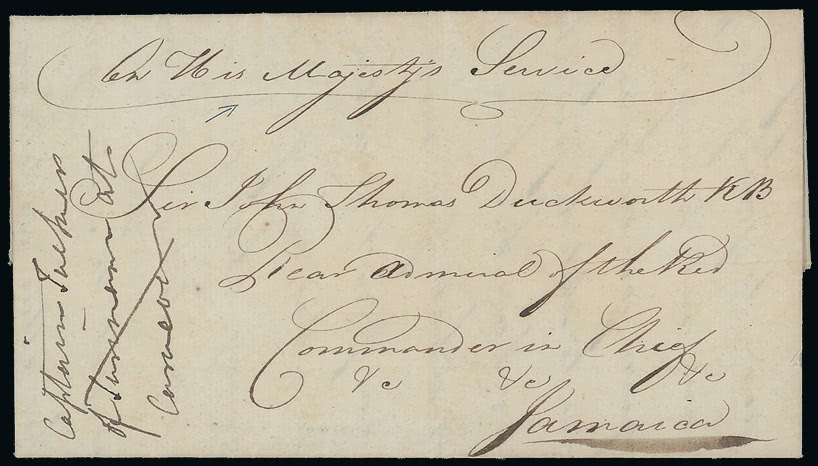 On His Majesty's Service
Sir John Thomas Duckworth KB
Rear Admiral of the Red
Commander in Chief
&c &c &c
Jamaica
Captain
of